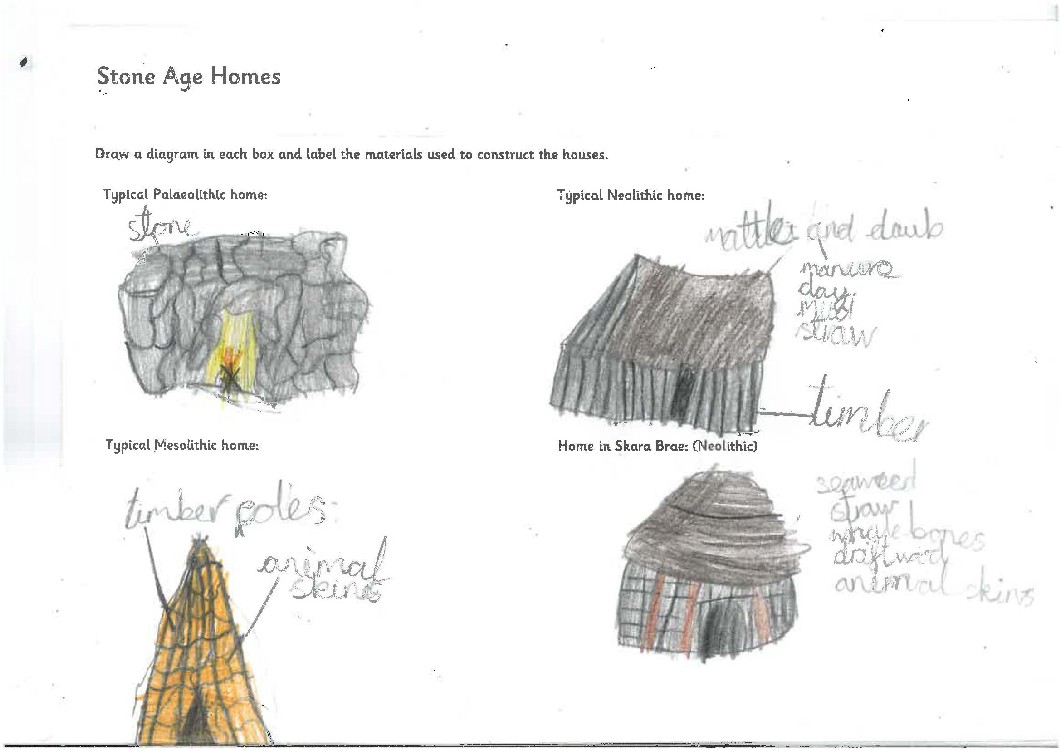 Stone Age Homes
Draw a diagram in each box and label the materials used to construct the houses.
Typical Palaeolithic home:
stone
Typical Neolithic home:
wattle and daub
manure
clay
mud
straw
timber
Typical Mesolithic home:
timber poles
animal
skins
Home in Skara Brae: (Neolithic)
seaweed
straw
bones
driftwood
animal skins